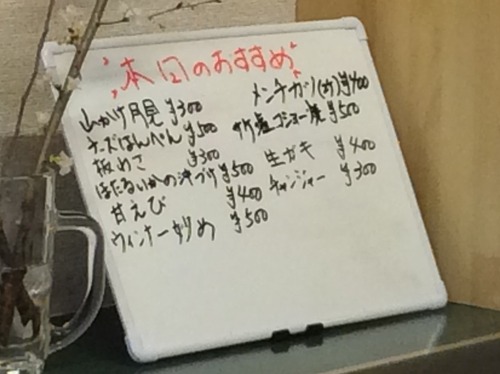 本日のおすすめ
山かけ月見 ¥300
チーズはんぺん ¥500
板わさ ¥300
ほたるいかの沖づけ ¥500
甘えび ¥400
ウィンナー炒め ¥500
メンチカツ ¥400
塩コショー焼 ¥500
生ガキ ¥400
チャンジャー ¥300